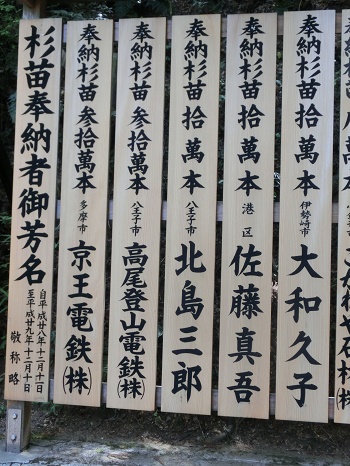 杉苗奉納者御芳名
自平成廿八年十二月十一日
至平成廿九年十二月十日
敬称略
奉納杉苗参拾萬本
多摩市
京王電鉄(株)
奉納杉苗参拾萬本
八王子市
高尾登山電鉄(株)
奉納杉苗拾萬本
八王子市
北島三郎
奉納杉苗拾萬本
港区
佐藤真吾
奉納杉苗拾萬本
伊勢崎市
大和久子